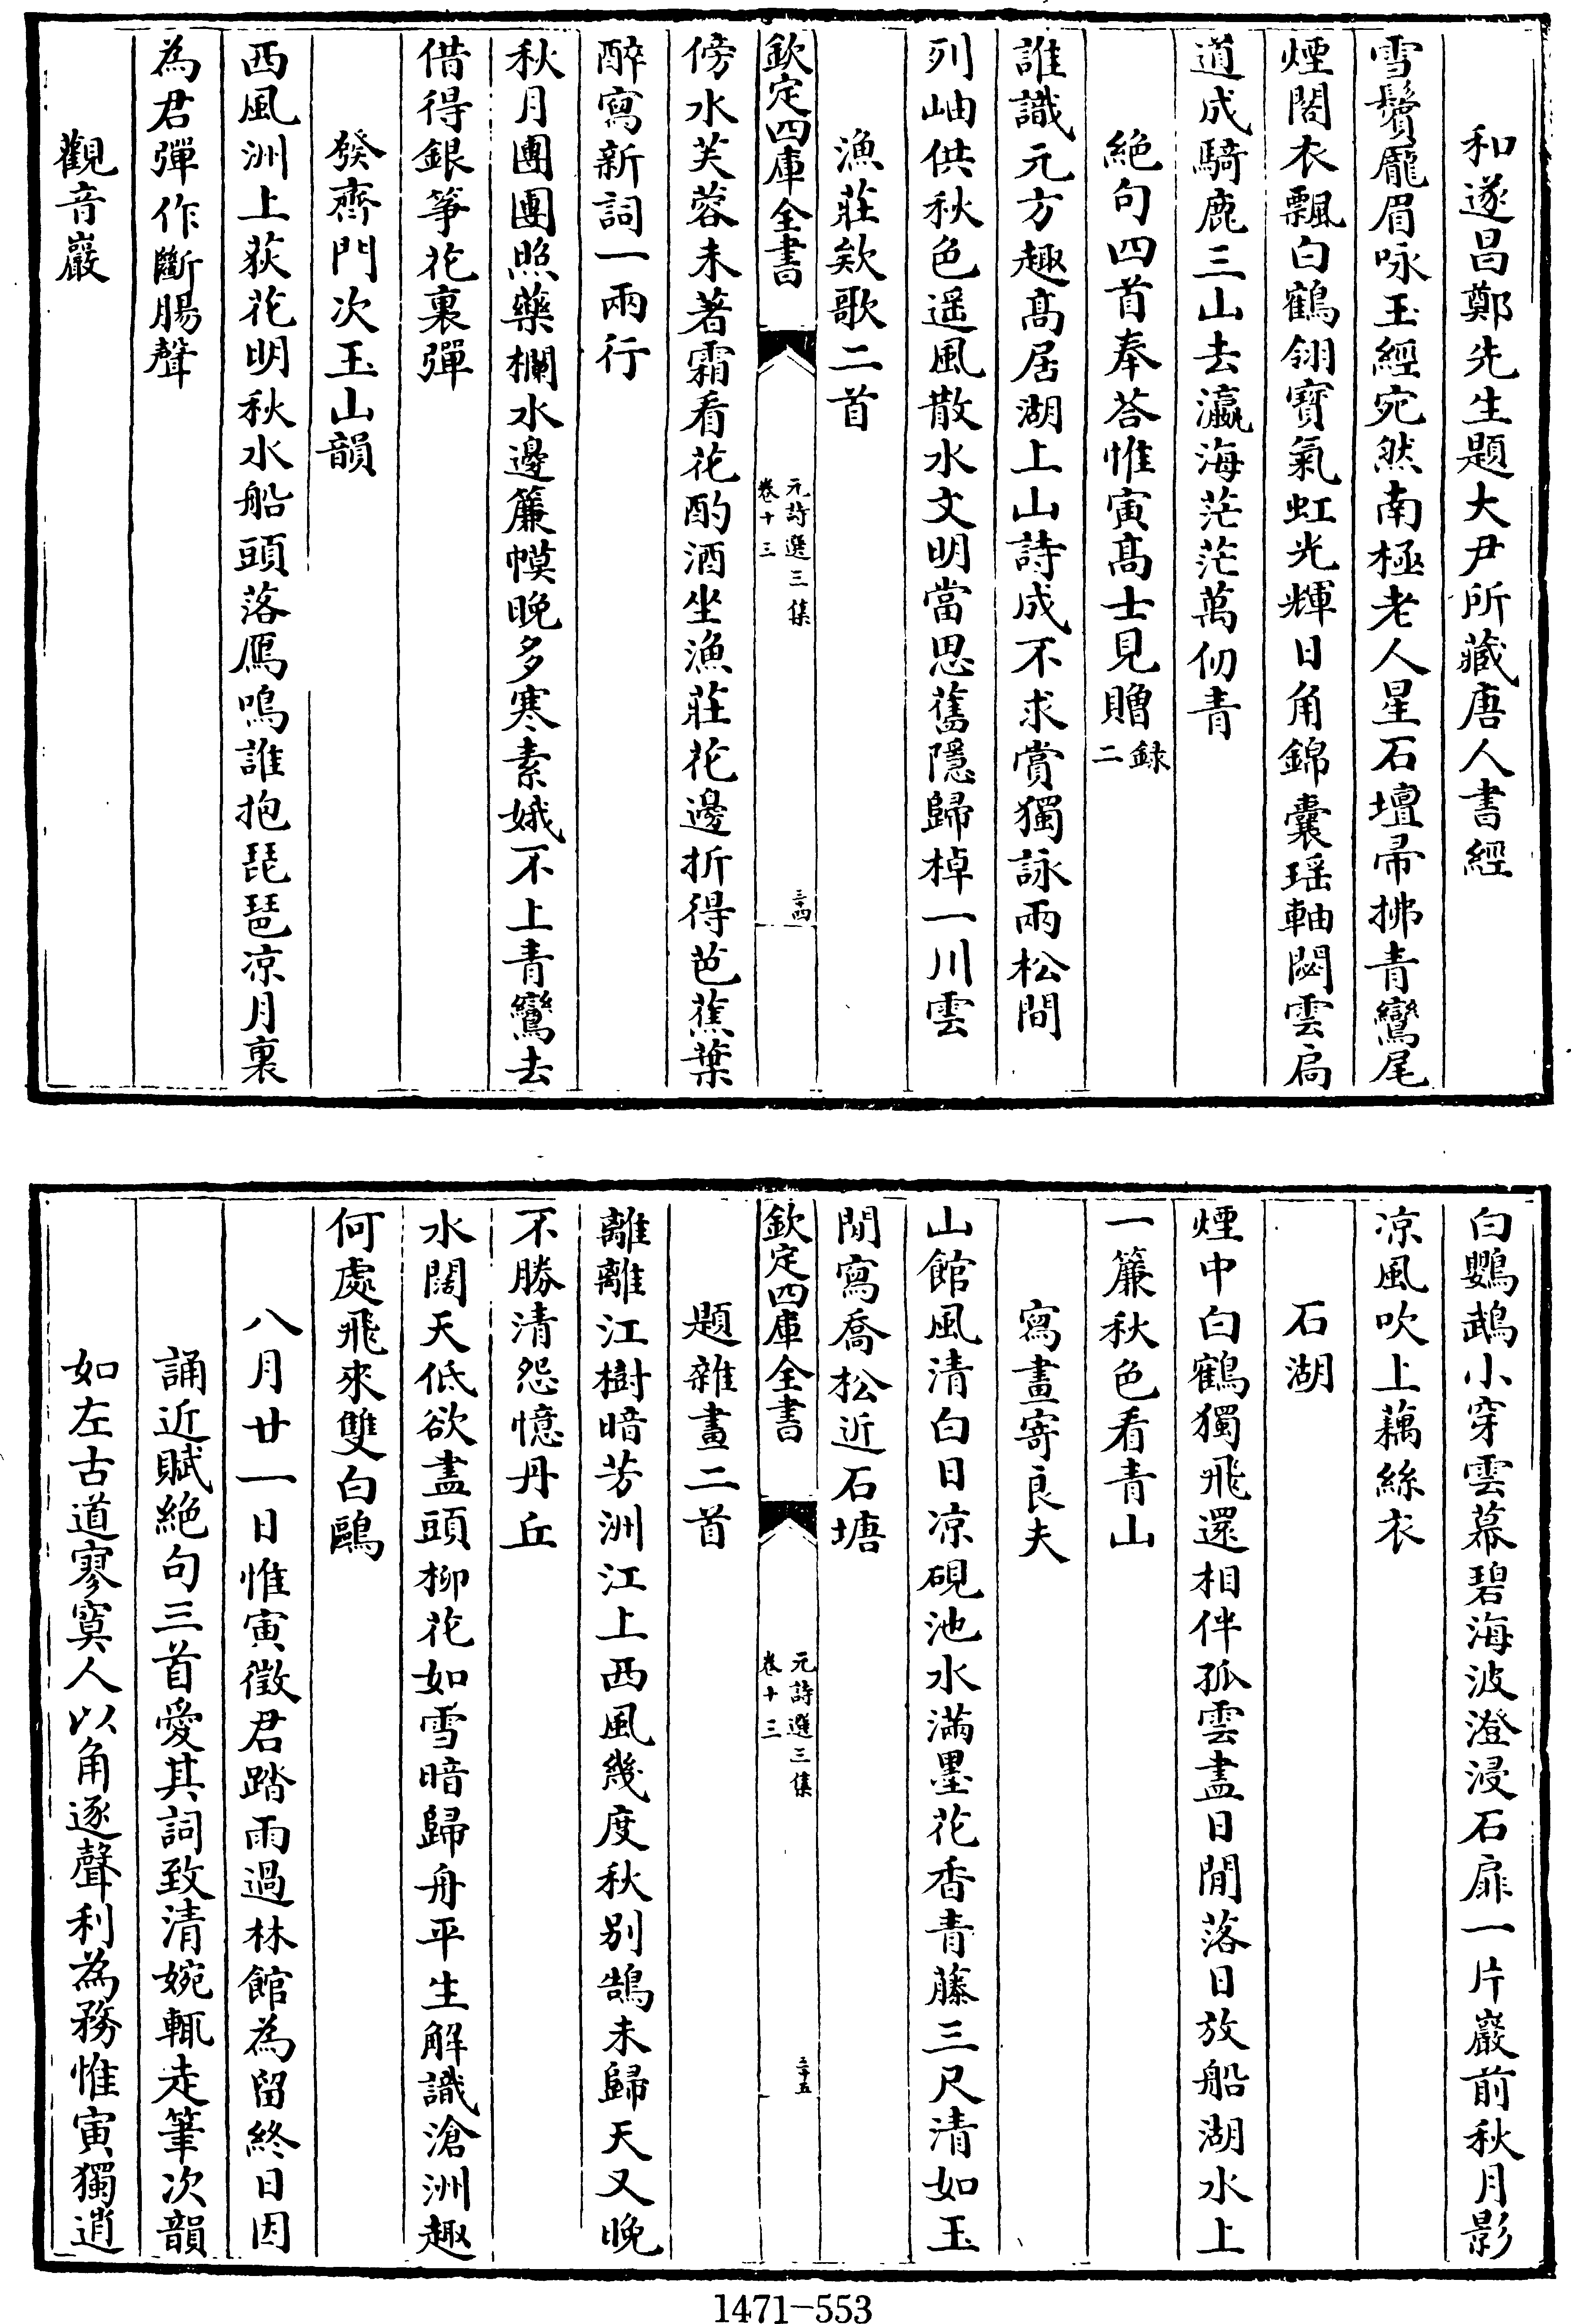 和遂昌鄭先生題大尹所藏唐人書經
雪鬢龎眉咏玉經宛然南極老人星石壇帚拂青鸞尾
煙閣衣飄白鶴翎寶氣虹光輝日角錦囊瑶軸閟雲扃
道成騎鹿三山去瀛海茫茫萬仞青
絶句四首奉荅惟寅髙士見贈錄二
誰識元方趣髙居湖上山詩成不求賞獨詠兩松間
列岫供秋色遥風散水文明當思舊隱歸棹一川雲
漁莊欵歌二首
欽定四庫全書
元詩選三集
卷十三
三四
傍水芙蓉未著霜看花酌酒坐漁莊花邊折得芭蕉葉
醉寫新詞一兩行
秋月團團照藥欄水邊簾幙晚多寒素娥不上青鸞去
借得銀箏花裏彈
發齊門次玉山韻
西風洲上荻花明秋水船頭落鴈鳴誰抱琵琶凉月裏
為君彈作斷腸聲
觀音巖
白鸚鵡小穿雲幕碧海波澄浸石扉一片巖前秋月影
凉風吹上藕絲衣
石湖
煙中白鶴獨飛還相伴孤雲盡日閒落日放船湖水上
一簾秋色看青山
寫畫寄良夫
山館風清白日凉硯池水滿墨花香青藤三尺清如玉
閒寫喬松近石塘
欽定四庫全書
元詩選三集
卷十三
三十五
題雜畫二首
離離江樹暗芳洲江上西風幾度秋别鵠未歸天又晚
不勝清怨憶丹丘
水闊天低欲盡頭柳花如雪暗歸舟平生解識滄洲趣
何處飛來雙白鷗
八月廿一日惟寅徵君踏雨過林館為留終日因
誦近賦絶句三首愛其詞致清婉輒走筆次韻
如左古道寥寞人以角逐聲利為務惟寅獨逍
1471-553